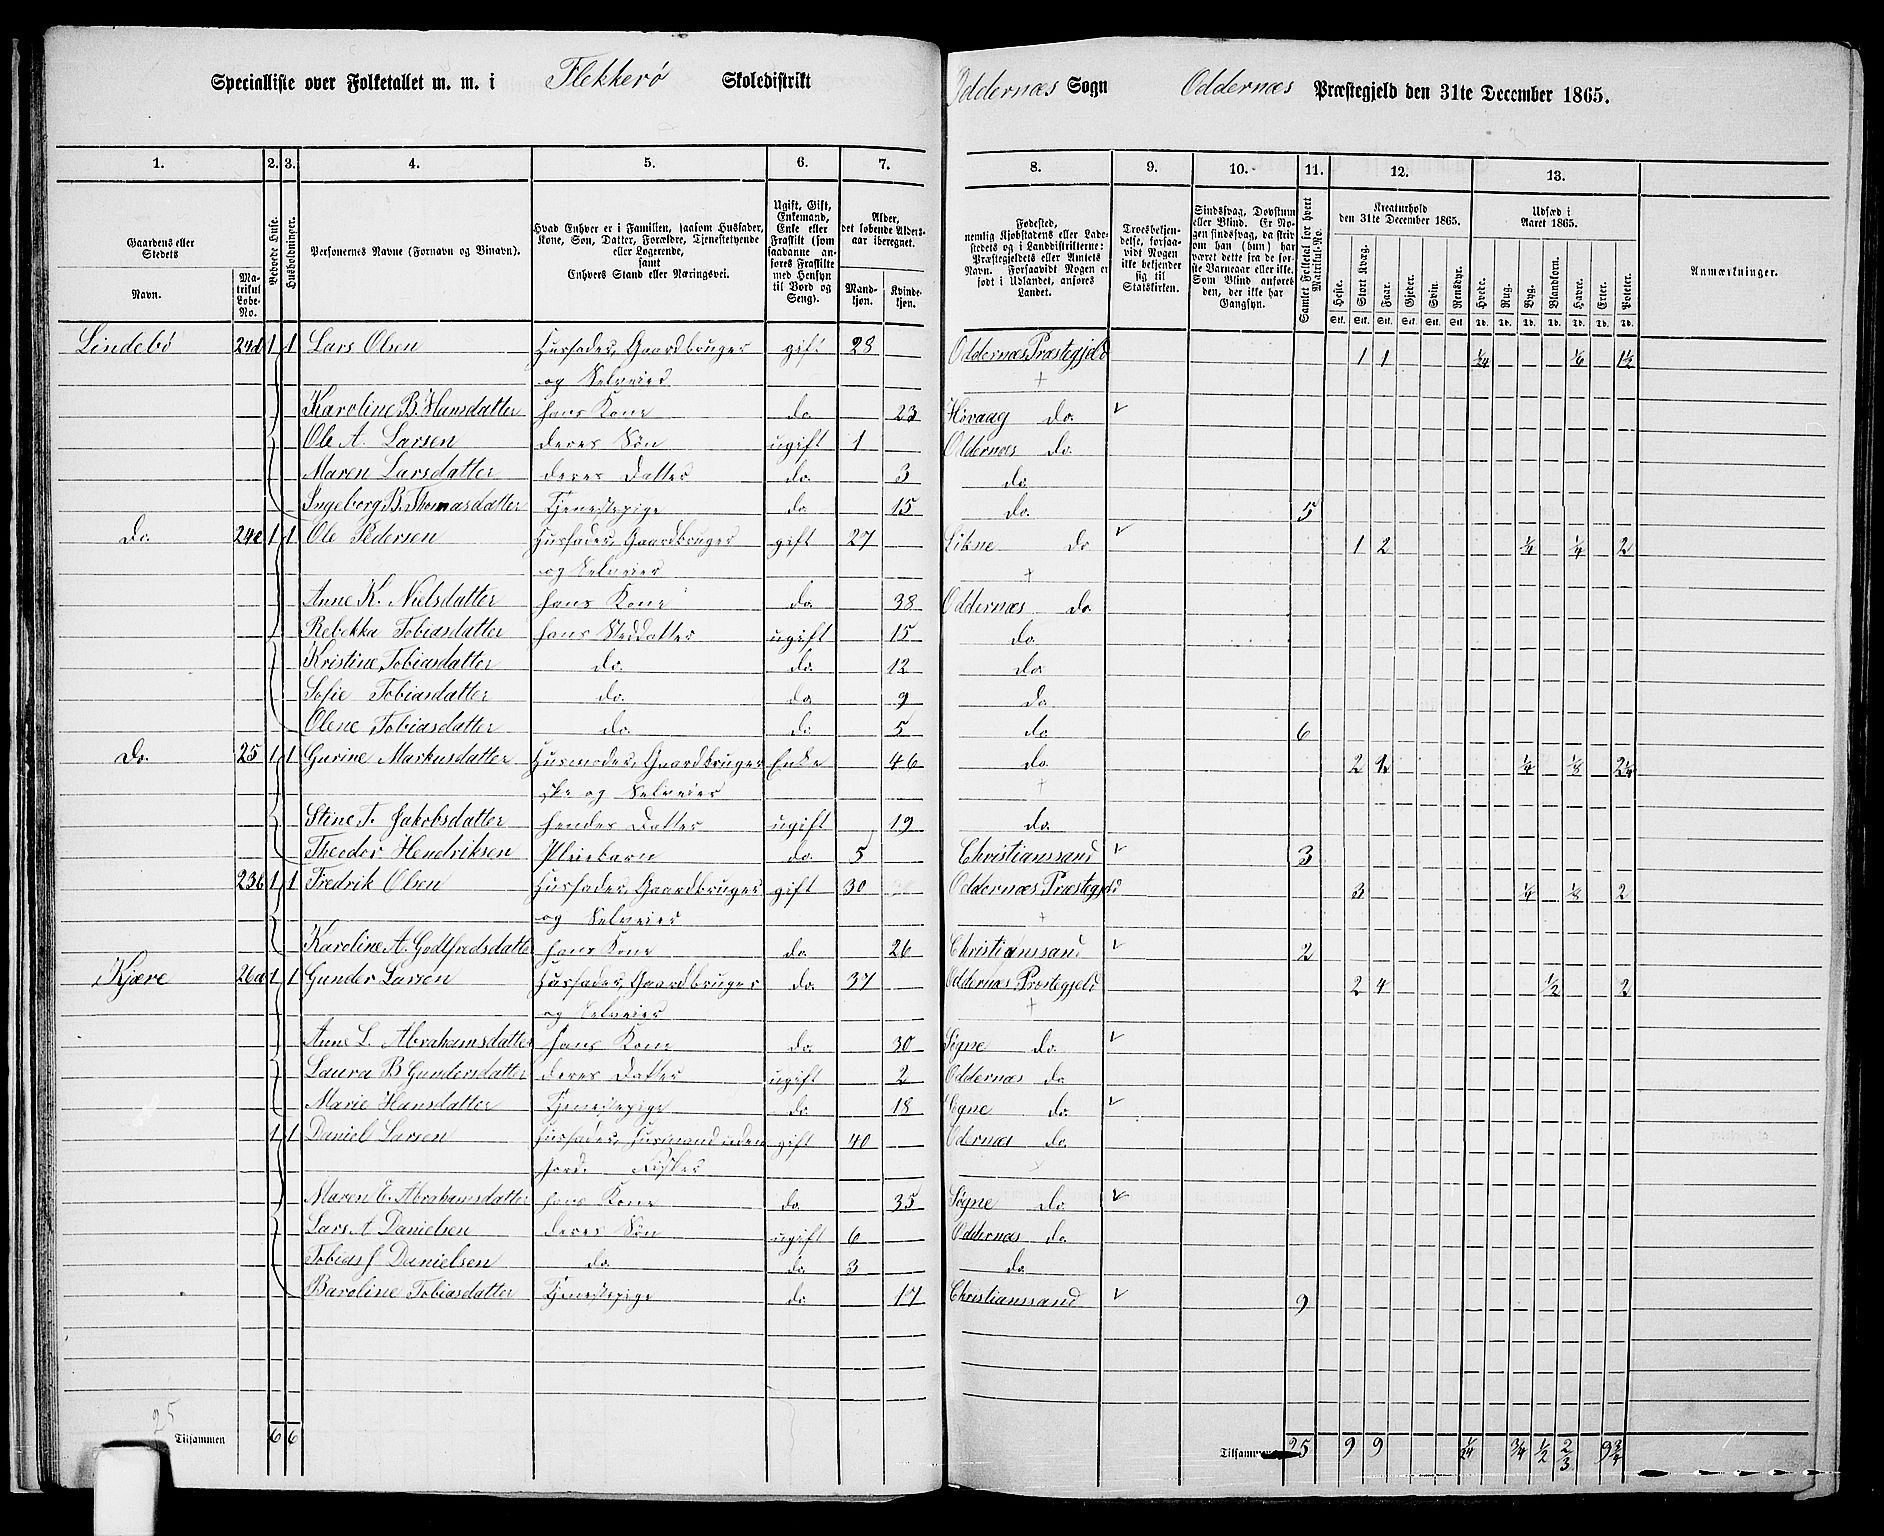 Specialliste over Folketallet m. m. i Flekkerø Skoledistrikt Oddernæs Sogn Oddernæs Præstegjeld den 31te December 1865.
1. 2. 3. 4. 5. 6. 7. 8. 9. 10. 11. 12. 13.
Gaardens eller Stedets Navn.
Matrikul Løbe-No.
Beboede Huse.
Husholdninger.
Personernes Navne (Fornavn og Binavn).
Hvad Enhver er i Familien, saasom Husfader, Kone, Søn, Datter, Forældre, Tjenestetyende eller Logerende, samt Enhvers Stand eller Næringsvei.
Ugift, Gift, Enkemand, Enke eller Fraskilt (som saadanne anføres Fraskilte med Hensyn til Bord og Seng).
Alder, det løbende Aldersaar iberegnet.
Mandkjøn. Kvindekjøn.
Fødested, nemlig Kjøbstadens eller Ladestedets og i Landdistrikterne: Præstegjeldets eller Amtets Navn. Forsaavidt Nogen er født i Udlandet, anføres Landet.
Troesbekjendelse, forsaavidt Nogen ikke bekjender sig til Statskirken.
Sindssvag, Døvstum eller Blind. Er Nogen sindssvag, da skriv om han (hun) har været dette fra de første Barneaar eller ikke. Som Blind anføres den, der ikke har Gangsyn.
Samlet Folketal for hvert Matrikul-No.
Kreaturhold den 31te December 1865.
Heste. Stort Kvæg. Faar. Gjeder. Svin. Rensdyr.
Stk. Stk. Stk. Stk. Stk. Stk.
Udsæd i Aaret 1865.
Hvede. Rug. Byg. Blandkorn. Havre. Erter. Poteter.
Td. Td. Td. Td. Td. Td. Td.
Anmærkninger.
Lindebø 24d 1 1 Lars Olsen Husfader, Gaardbruger gift 28 Oddernæs Præstegjeld 1 1 1/24 1/6 1½
og Selveier +
Karoline B. Hansdatter hans Kone do. 23 Høvaag do.
Ole A. Larsen deres Søn ugift 1 Oddernæs do.
Maren Larsdatter deres Datter do. 3 do.
Ingeborg B. Thomasdatter Tjenestepige do. 15 do. 5
Do. 24e 1 1 Ole Pedersen Husfader, Gaardbruger gift 27 do 1 2 ¼ ¼ 2
og Selveier +
Anne K. Nielsdatter hans Kone do. 38 Oddernæs do
Rebekka Tobiasdatter hans Steddatter ugift 15 do.
Kristine Tobiasdatter do. do. 12 do.
Sofie Tobiasdatter do. do. 9 do.
Olene Tobiasdatter do. do. 5 do. 6
Do. 25 1 1 Gurine Markusdatter Husmoder, Gaardbruger Enke 46 do. 2 1 ¼ ⅛ 2¼
ske og Selveier +
Stine T. Jakobsdatter hendes Datter ugift 19 do.
Theodor Hendriksen Pleiebarn do. 5 Christianssand 3
23b 1 1 Fredrik Olsen Husfader, Gaardbruger gift 30 Oddernæs Præstegjeld 3 ¼ ⅛ 2
og Selveier +
Karoline A. Godtfredsdatte hans Kone do. 26 Christianssand 2
Kjære 26a 1 1 Gunder Larsen Husfader, Gaardbruger do. 37 Oddernæs Præstegjeld 2 4 ½ 2
og Selveier +
Anne L. Abrahamsdatter hans Kone do. 30 Søgne do.
Laura B Gundersdatter deres Datter ugift 2 Oddernæs do.
Marie Hansdatter Tjenestepige do. 18 Søgne do.
1 1 Daniel Larsen Husfader, Husmand uden gift 40 Odernæs do.
Jord. Fisker
Maren E. Abrahamsdatter hans Kone do. 35 Søgne do.
Lars A Danielsen deres Søn ugift 6 Oddernæs do.
Tobias J Danielsen do. do. 3 do.
Baroline Tobiasdatter Tjenestepige do. 17 Christianssand 9
25
Tilsammen 6 6 Tilsammen 25 9 9 ¼ ¾ ½ ⅔ 9¾